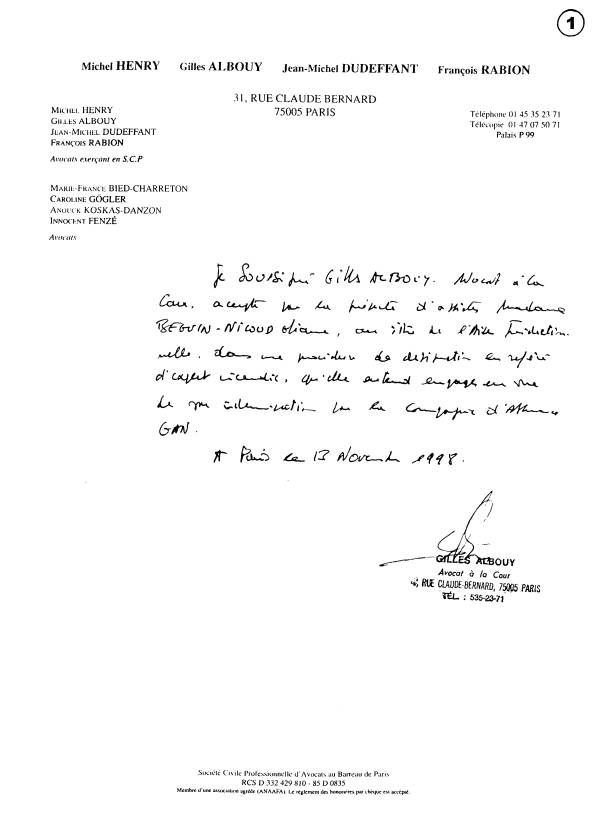 1
Michel HENRY Gilles ALBOUY Jean-Michel DUDEFFANT François RABION
31, RUE CLAUDE BERNARD
75005 PARIS
Téléphone 01 45 35 23 71
Télécopie 01 47 07 50 71
Palais P 99
MICHEL HENRY
GILLES ALBOUY
JEAN-MICHEL DUDEFFANT
FRANÇOIS RABION
Avocats exerçant en S.C.P
MARIE-FRANCE BIED-CHARRETON
CAROLINE GÖGLER
ANOUCK KOSKAS-DANZON
INNOCENT FENZÉ
Avocats
Je soussigné Gilles ALBOUY. Avocat à la
Cour, accepte par la présente d'assister Madame
BEGUIN-NICOUD, au titre de l'Aide Juridiction
nelle, dans une procédure de désignation en référé
d'expert incendie, qu'elle entend engager en vue
de son indemnisation par la Compagnie d'Assurances
GAN.
A Paris le 13 Novembre 1998.
GILLES ALBOUY
Avocat à la Cour
RUE CLAUDE-BERNARD, 75005 PARIS
TÉL. : 535-23-71
Société Civile Professionnelle d'Avocats au Barreau de Paris
RCS D 332 429 810 - 85 D 0835
Membre d'une association agréée (ANAAFA). Le règlement des honoraires par chèque est accepté.